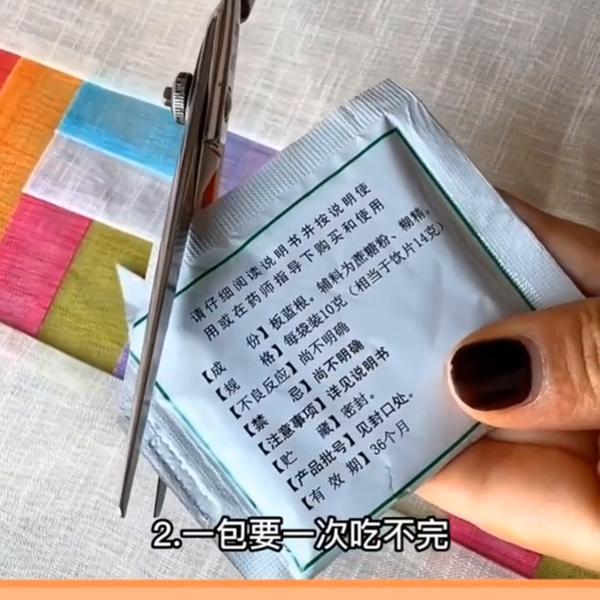 请仔细阅读说明书并按说明使
用或在药师指导下购买和使用
【成　份】板蓝根。辅料为蔗糖粉、糊精。
【规　格】每袋装10克（相当于饮片14克）
【不良反应】尚不明确
【禁　忌】尚不明确
【注意事项】详见说明书
【贮　藏】密封。
【产品批号】见封口处。
【有 效 期】36个月
2.一包要一次吃不完